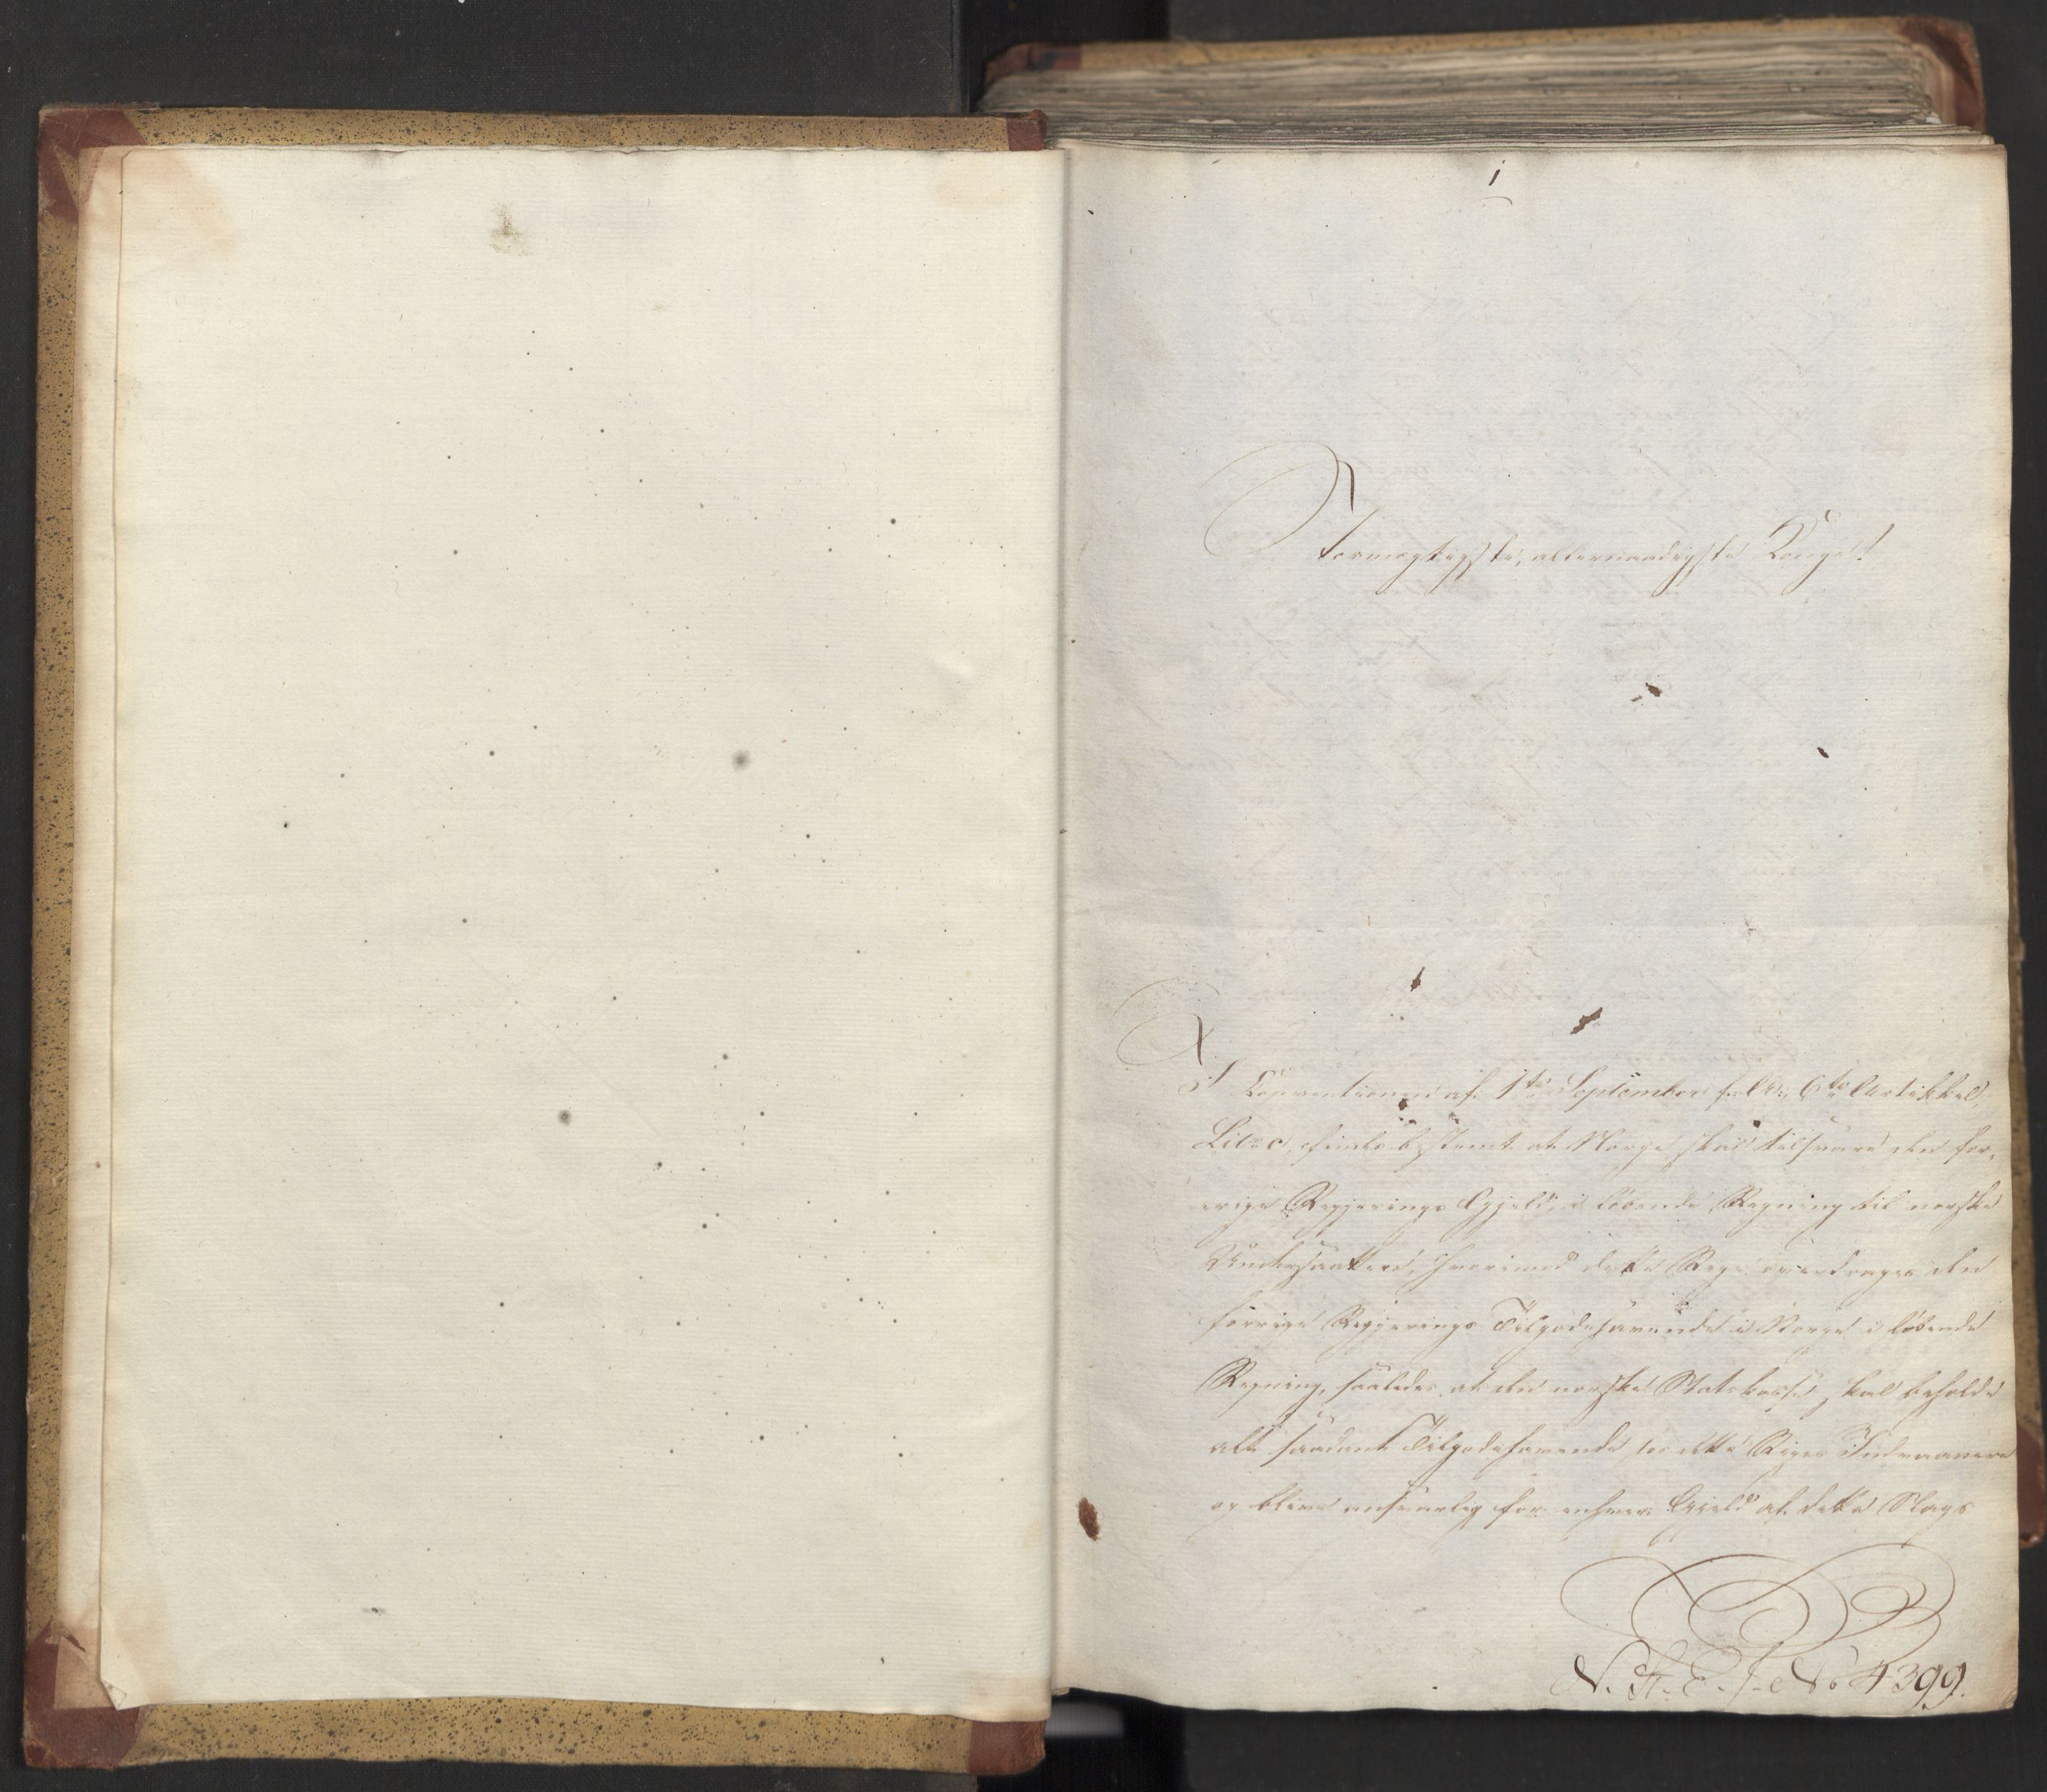 1
Stormægtigste, allernaadigste Konge!
I Conventionen af 1ste September f. A. 6te Artikkel,
Litr. c, findes bestemt at Norge skal tilsvare den for-
rige Regjerings Gjeld i løbende Regning til norske
Undersaatter, hvorimod dette Rige overdrages den
forrige Regjerings Tilgodehavende i Norge i løbende
Regning, saaledes at den norske Statskasse skal beholde
alt saadant Tilgodehavende hos dette Riges Indvaanere
og blive ansvarlig for enhver Gjeld af dette Slags
No 4399.